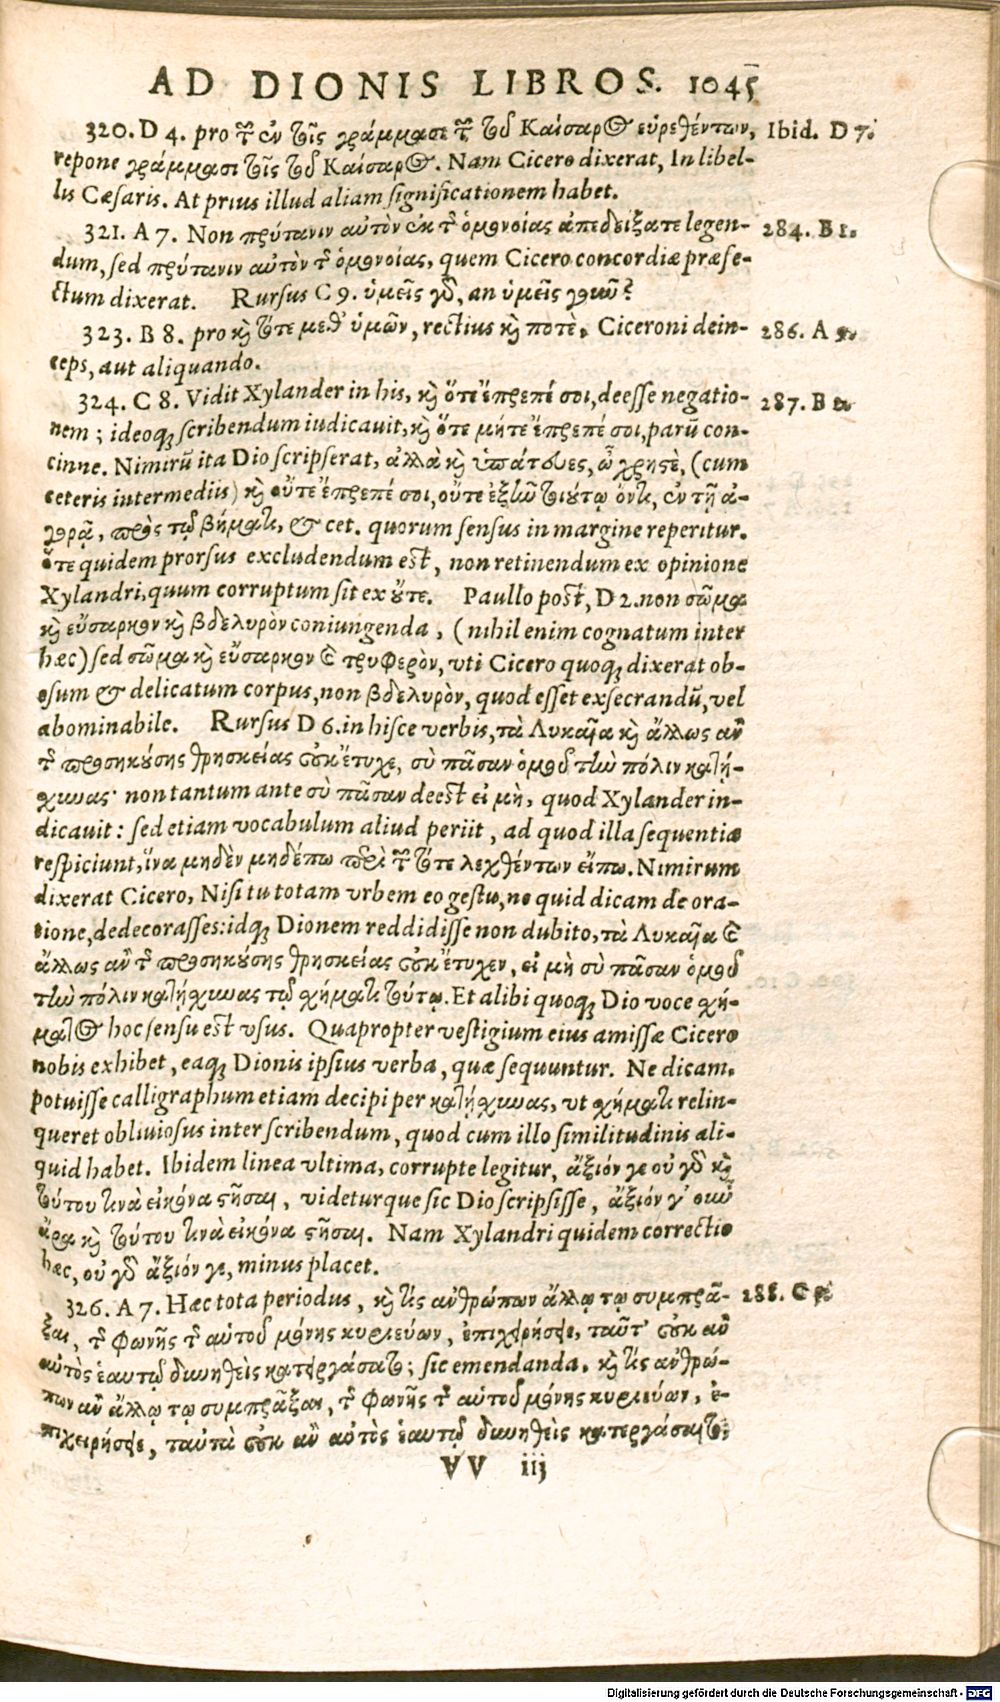 AD DIONIS LIBROS. 1045
320. D 4. pro τῶν ἐν τοῖς γράμμασι τῶν τοῦ Καίσαρος εὑρεθέντων, Ibid. D 7.
repone γράμμασι τοῖς τοῦ Καίσαρος. Nam Cicero dixerat, In libel-
lis Cæsaris. At prius illud aliam significationem habet.
321. A 7. Non πρύτανιν αὐτὸν ἐκ τῆς ὁμονοίας ἀπεδείξατε legen- 284. B 1.
dum, sed πρύτανιν αὐτὸν τῆς ὁμονοίας, quem Cicero concordiæ præfe-
ctum dixerat. Rursus C 9. ὑμεῖς γὰρ, an ὑμεῖς γοῦν?
323. B 8. pro καὶ τότε μεθ' ὑμῶν, rectius καὶ ποτὲ. Ciceroni dein- 286. A
ceps, aut aliquando.
324. C 8. Vidit Xylander in his, καὶ ὅτε ἔπρεπέ σοι, deesse negatio- 287. B
nem; ideoq; scribendum iudicauit, καὶ ὅτε μήτε ἔπρεπέ σοι, parū con-
cinne. Nimirū ita Dio scripserat, ἀλλὰ καὶ ὑπατεύες, ὦ χρησὲ, (cum
ceteris intermediis) καὶ οὔτε ἔπρεπέ σοι, οὔτε ἐξῆν τοιούτῳ ὄντι, ἐν τῇ ἀ-
γορᾷ, πρὸς τῷ βήματι, & cet. quorum sensus in margine reperitur.
ὅτε quidem prorsus excludendum est, non retinendum ex opinione
Xylandri, quum corruptum sit ex οὔτε. Paullo post, D 2. non σῶμα
καὶ εὔσαρκον καὶ βδελυρὸν coniungenda, (nihil enim cognatum inter
hæc) sed σῶμα καὶ εὔσαρκον καὶ τρυφερὸν, vti Cicero quoq; dixerat ob-
esum & delicatum corpus, non βδελυρὸν, quod esset exsecrandū, vel
abominabile. Rursus D 6. in hisce verbis, τὰ Λυκαῖα καὶ ἄλλως ἂν
τῆς προσηκούσης θρησκείας οὐκ ἔτυχε, σὺ πᾶσαν ὁμοῦ τὴν πόλιν κατῄ-
χυνας· non tantum ante σὺ πᾶσαν deest εἰ μὴ, quod Xylander in-
dicauit: sed etiam vocabulum aliud periit, ad quod illa sequentia
respiciunt, ἵνα μηδὲν μηδέπω περὶ τῶν τότε λεχθέντων εἴπω. Nimirum
dixerat Cicero, Nisi tu totam vrbem eo gestu, ne quid dicam de ora-
tione, dedecorasses: idq; Dionem reddidisse non dubito, τὰ Λυκαῖα καὶ
ἄλλως ἂν τῆς προσηκούσης θρησκείας οὐκ ἔτυχεν, εἰ μὴ σὺ πᾶσαν ὁμοῦ
τὴν πόλιν κατῄχυνας τῷ χήματι τούτῳ. Et alibi quoq; Dio voce χή-
ματος hoc sensu est vsus. Quapropter vestigium eius amissæ Cicero
nobis exhibet, eaq; Dionis ipsius verba, quæ sequuntur. Ne dicam,
potuisse calligraphum etiam decipi per κατῄχυνας, vt χήματι relin-
queret obliuiosus inter scribendum, quod cum illo similitudinis ali-
quid habet. Ibidem linea vltima, corrupte legitur, ἄξιόν γε οὐ γὰρ καὶ
τούτου τινὰ εἰκόνα στῆσαι, videturque sic Dio scripsisse, ἄξιόν γ' οὖν
ἄρα καὶ τούτου τινὰ εἰκόνα στῆσαι. Nam Xylandri quidem correctio
hæc, οὐ γὰρ ἄξιόν γε, minus placet.
326. A 7. Hæc tota periodus, καὶ τίς ἀνθρώπων ἄλλῳ τῳ συμπρᾶ- 288. C
ξαι, τῆς φωνῆς τῆς αὑτοῦ μόνης κυριεύων, ἐπιχειρήσειε, ταῦτ' οὐκ ἂν
αὐτὸς ἑαυτῷ δυνηθεὶς κατειργάσατο; sic emendanda, καὶ τίς ἀνθρώ-
πων ἂν ἄλλῳ τῳ συμπρᾶξαι, τῆς φωνῆς τῆς αὑτοῦ μόνης κυριεύων, ἐ-
πιχειρήσειε, ταῦτα οὐκ ἂν αὐτὸς ἑαυτῷ δυνηθεὶς κατεργάσαιτο;
VV iij
Digitalisierung gefördert durch die Deutsche Forschungsgemeinschaft - DFG